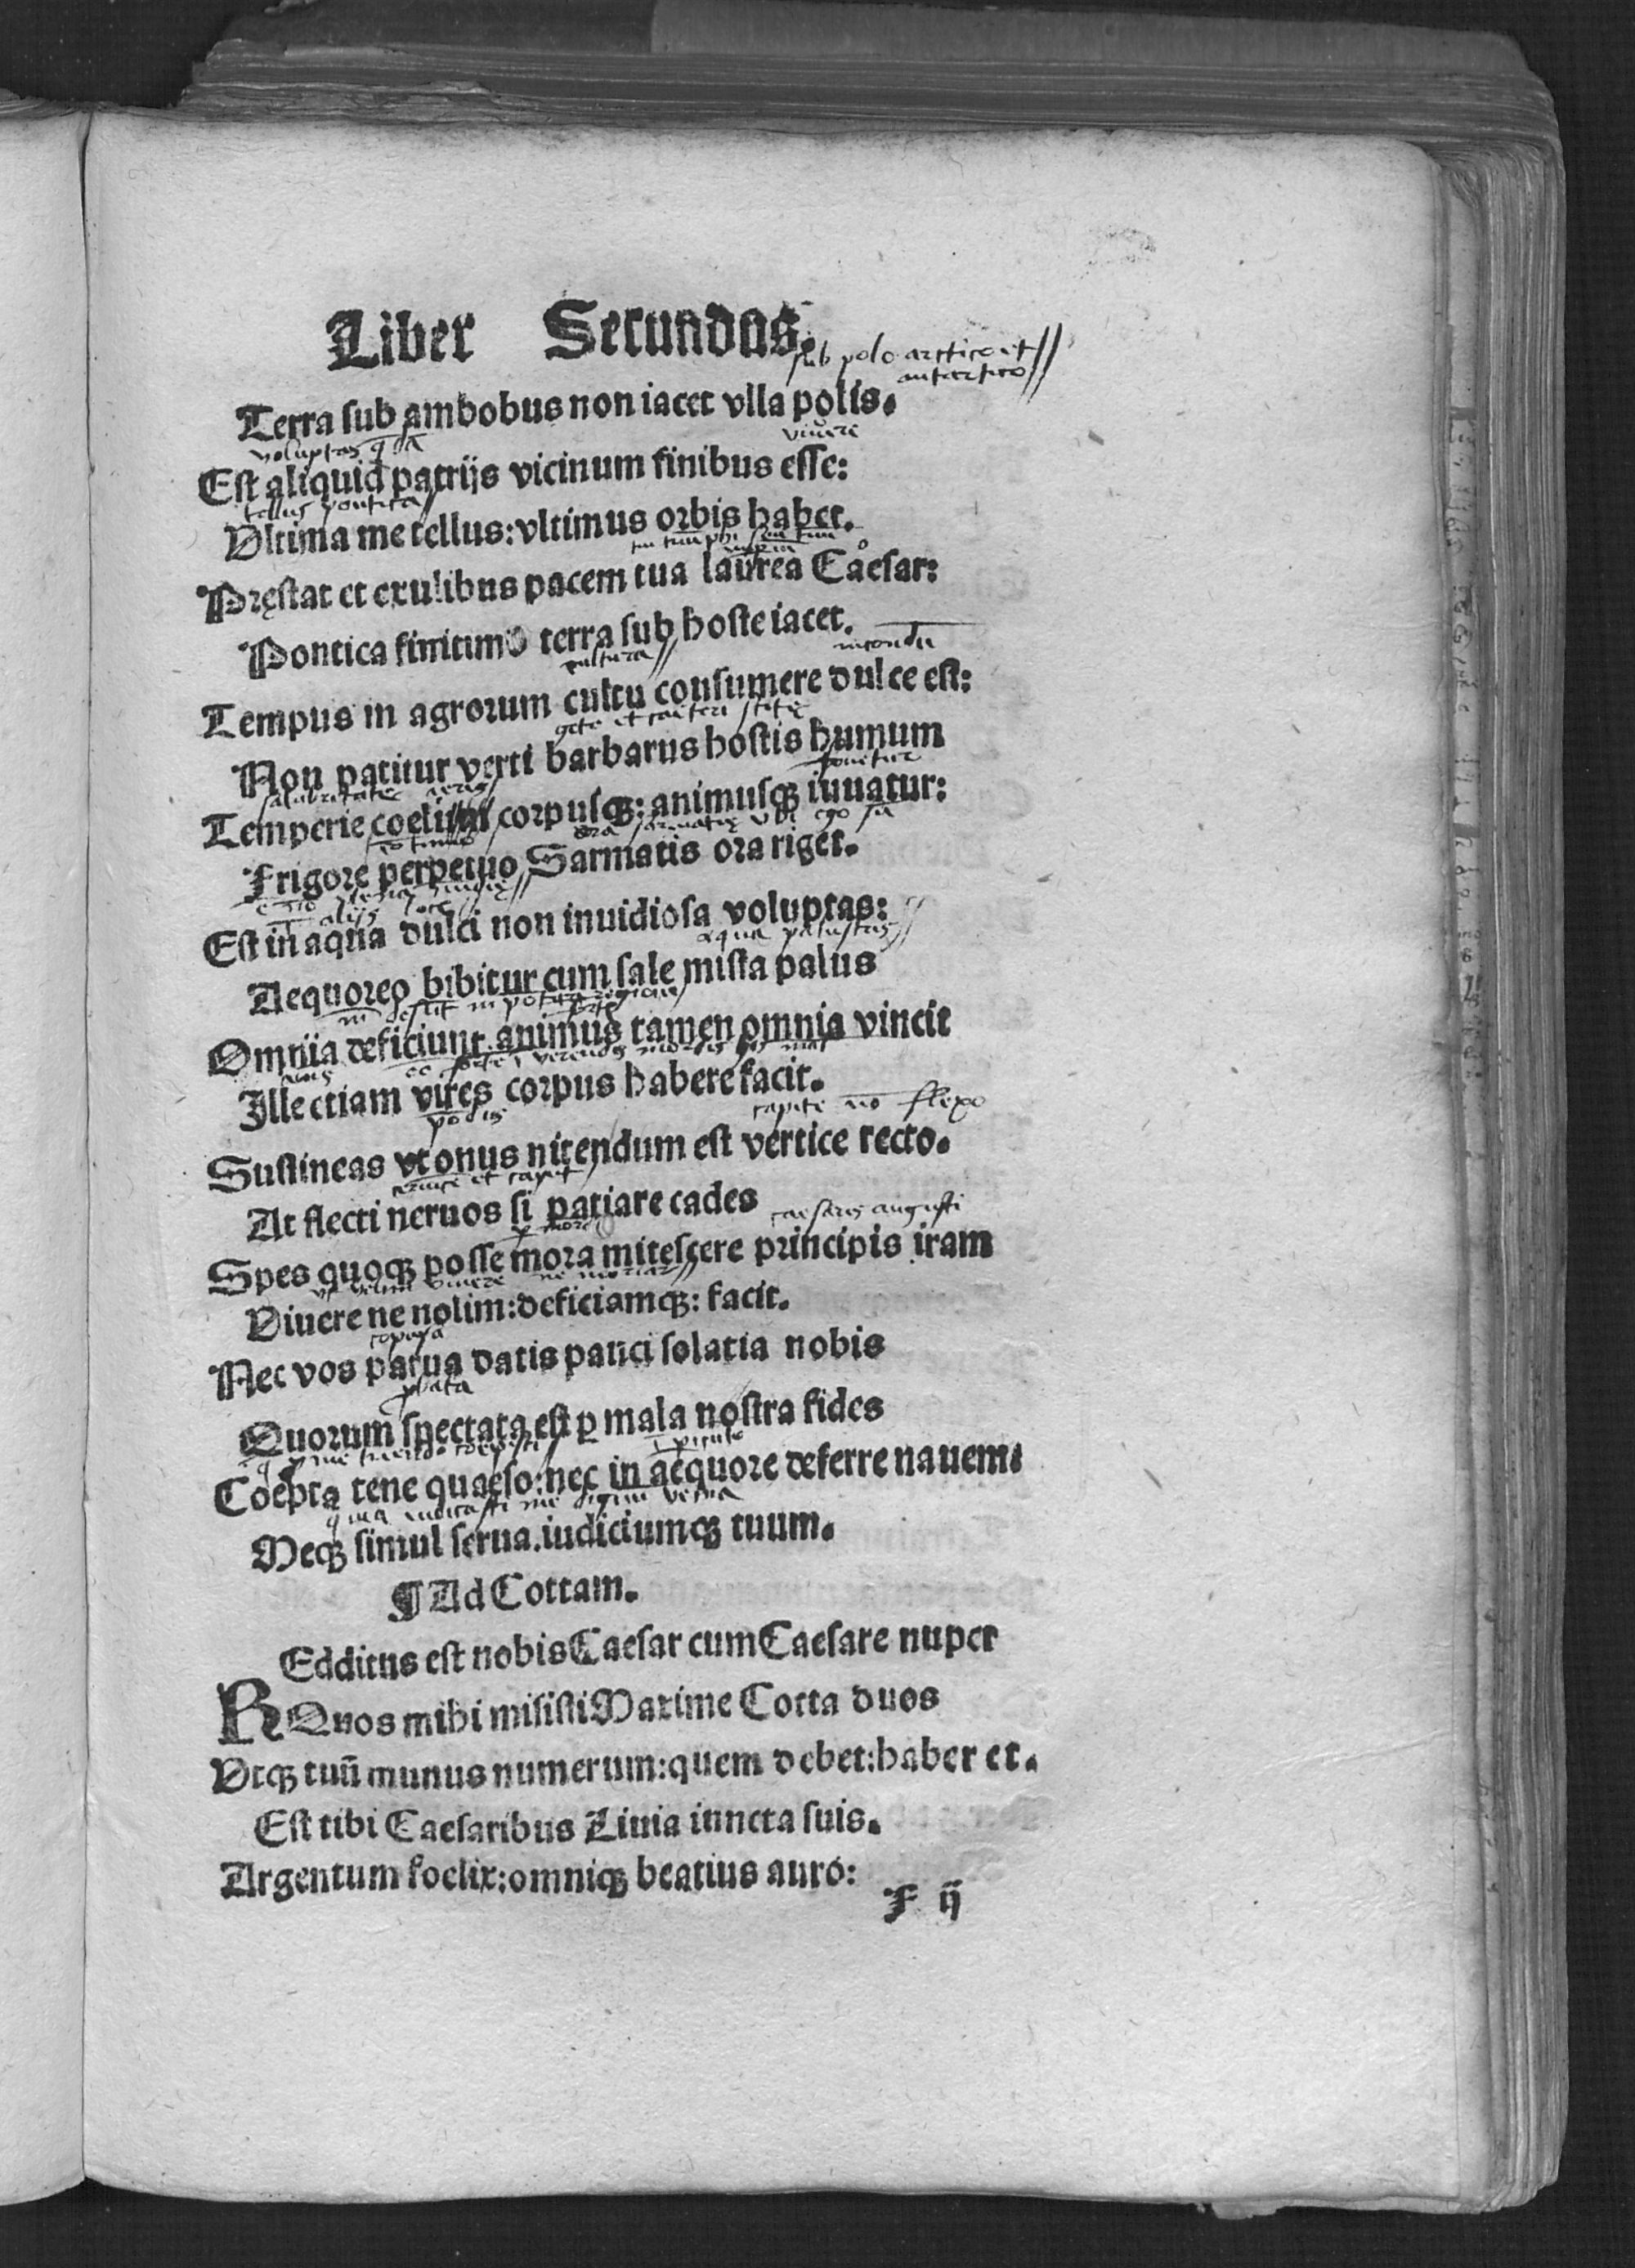 Liber Secundus.
sub polo arctico et
antartico
Terra sub ambobus non iacet vlla polis.
voluptas
viuere
Est aliquid patrijs vicinum finibus esse:
tellus pontica
Vltima me tellus: vltimus orbis habet.
Pręstat et exulibus pacem tua laurea Caesar:
Pontica finitimo terra sub hoste iacet.
cultura
Tempus in agrorum cultu consumere dulce est:
Non patitur verti barbarus hostis humum
fouetur
Temperie coeli corpusqꝫ: animusqꝫ iuuatur:
Frigore perpetuo Sarmatis ora riget.
Est in aqua dulci non inuidiosa voluptas:
aqua palustris
Aequoreo bibitur cum sale mista palus
Omnia deficiunt. animus tamen omnia vincit
Ille etiam vires corpus habere facit.
capite nō flexo
Sustineas vt onus nitendum est vertice recto.
At flecti neruos si patiare cades
caesaris augusti
Spes quoqꝫ posse mora mitescere principis iram
Viuere ne nolim: deficiamqꝫ: facit.
Nec vos parua datis pauci solatia nobis
Quorum spectata est ꝑ mala nostra fides
Coepta tene quaeso: nec in aequore deferre nauem:
Meqꝫ simul serua. iudiciumqꝫ tuum.
¶ Ad Cottam.
REdditus est nobis Caesar cum Caesare nuper
Quos mihi misisti Maxime Cotta duos
Vtqꝫ tuū munus numerum: quem debet: haberet.
Est tibi Caesaribus Liuia iuncta suis.
Argentum foelix: omniqꝫ beatius auro:
F ij